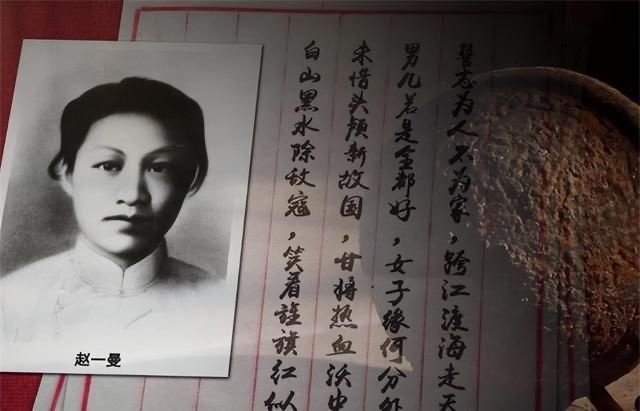 誓志为人不为家，跨江渡海走天
男儿若是全都好，女子缘何分外
未惜头颅新故国，甘将热血沃中
白山黑水除敌寇，笑看旌旗红似
赵一曼